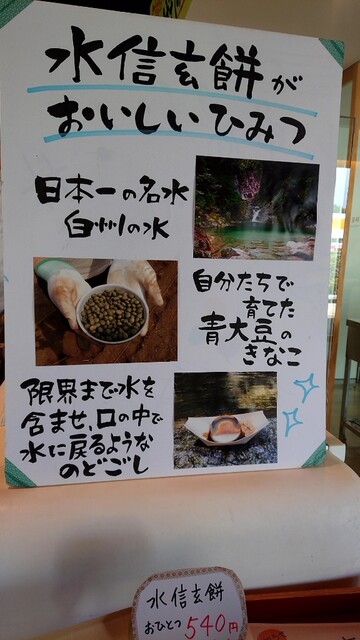 水信玄餅が
おいしいひみつ
日本一の名水
白州の水
自分たちで
育てた
青大豆の
きなこ
限界まで水を
含ませ、口の中で
水に戻るような
のどごし
水信玄餅
おひとつ540円